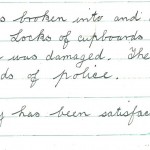 s broken into and
Locks of cupboards
was damaged. The
ds of police.
y has been satisfac